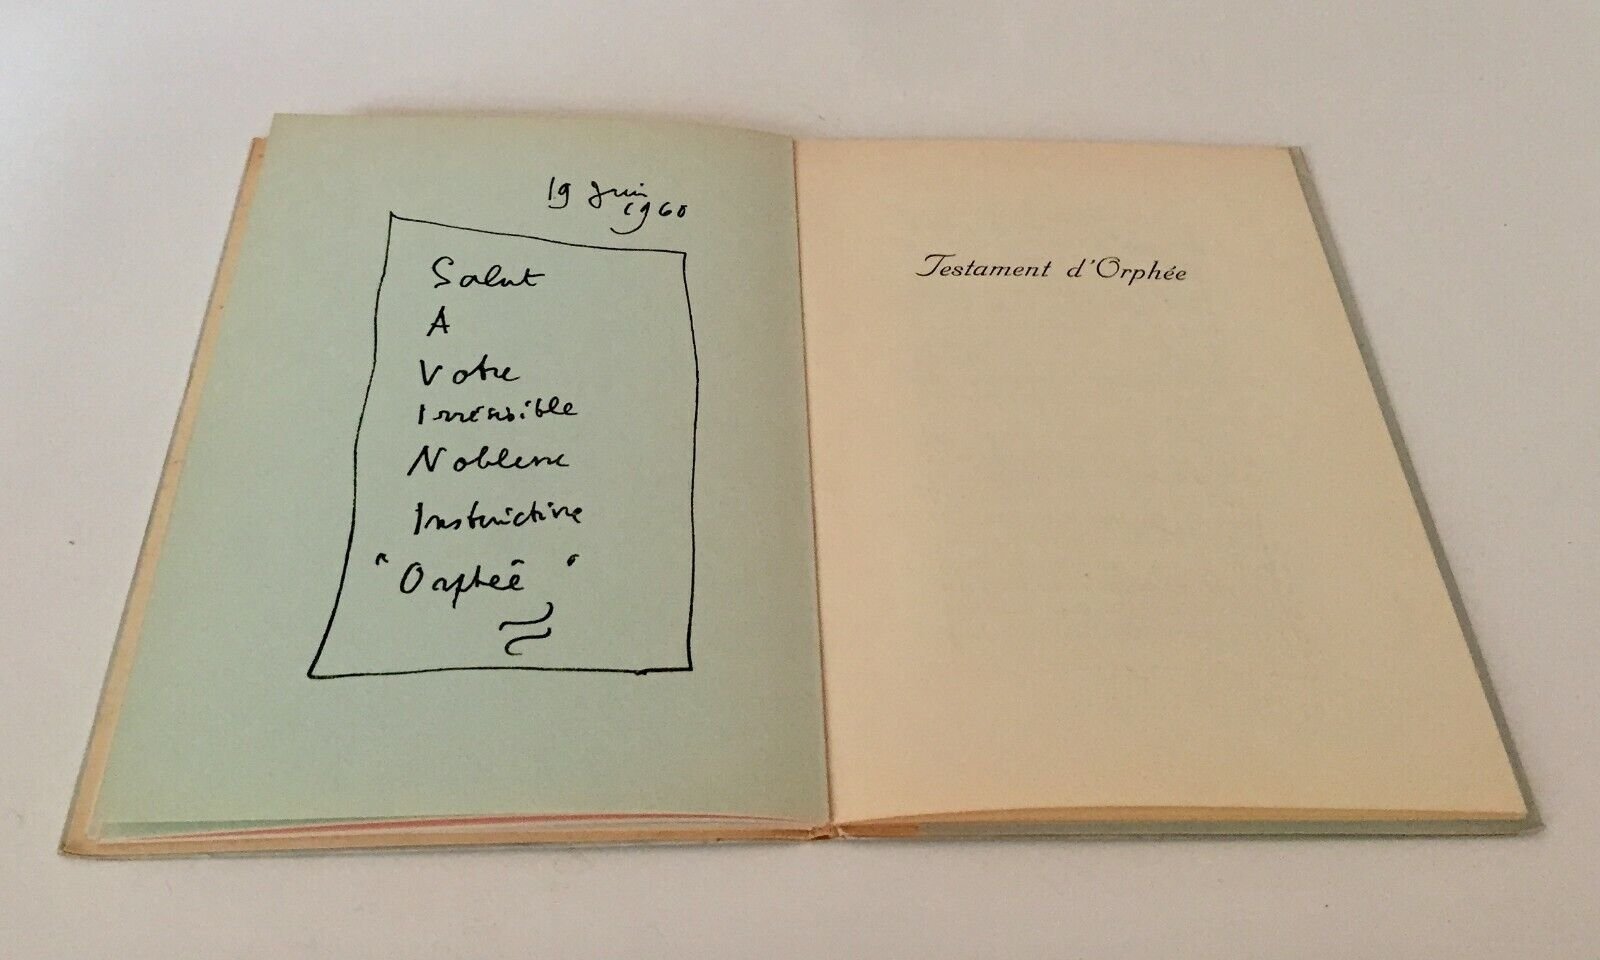 19 Juin
1960
Salut
A
Votre
Irrésisible
Noblesse
Instructive
"Orphée"
Testament d'Orphée